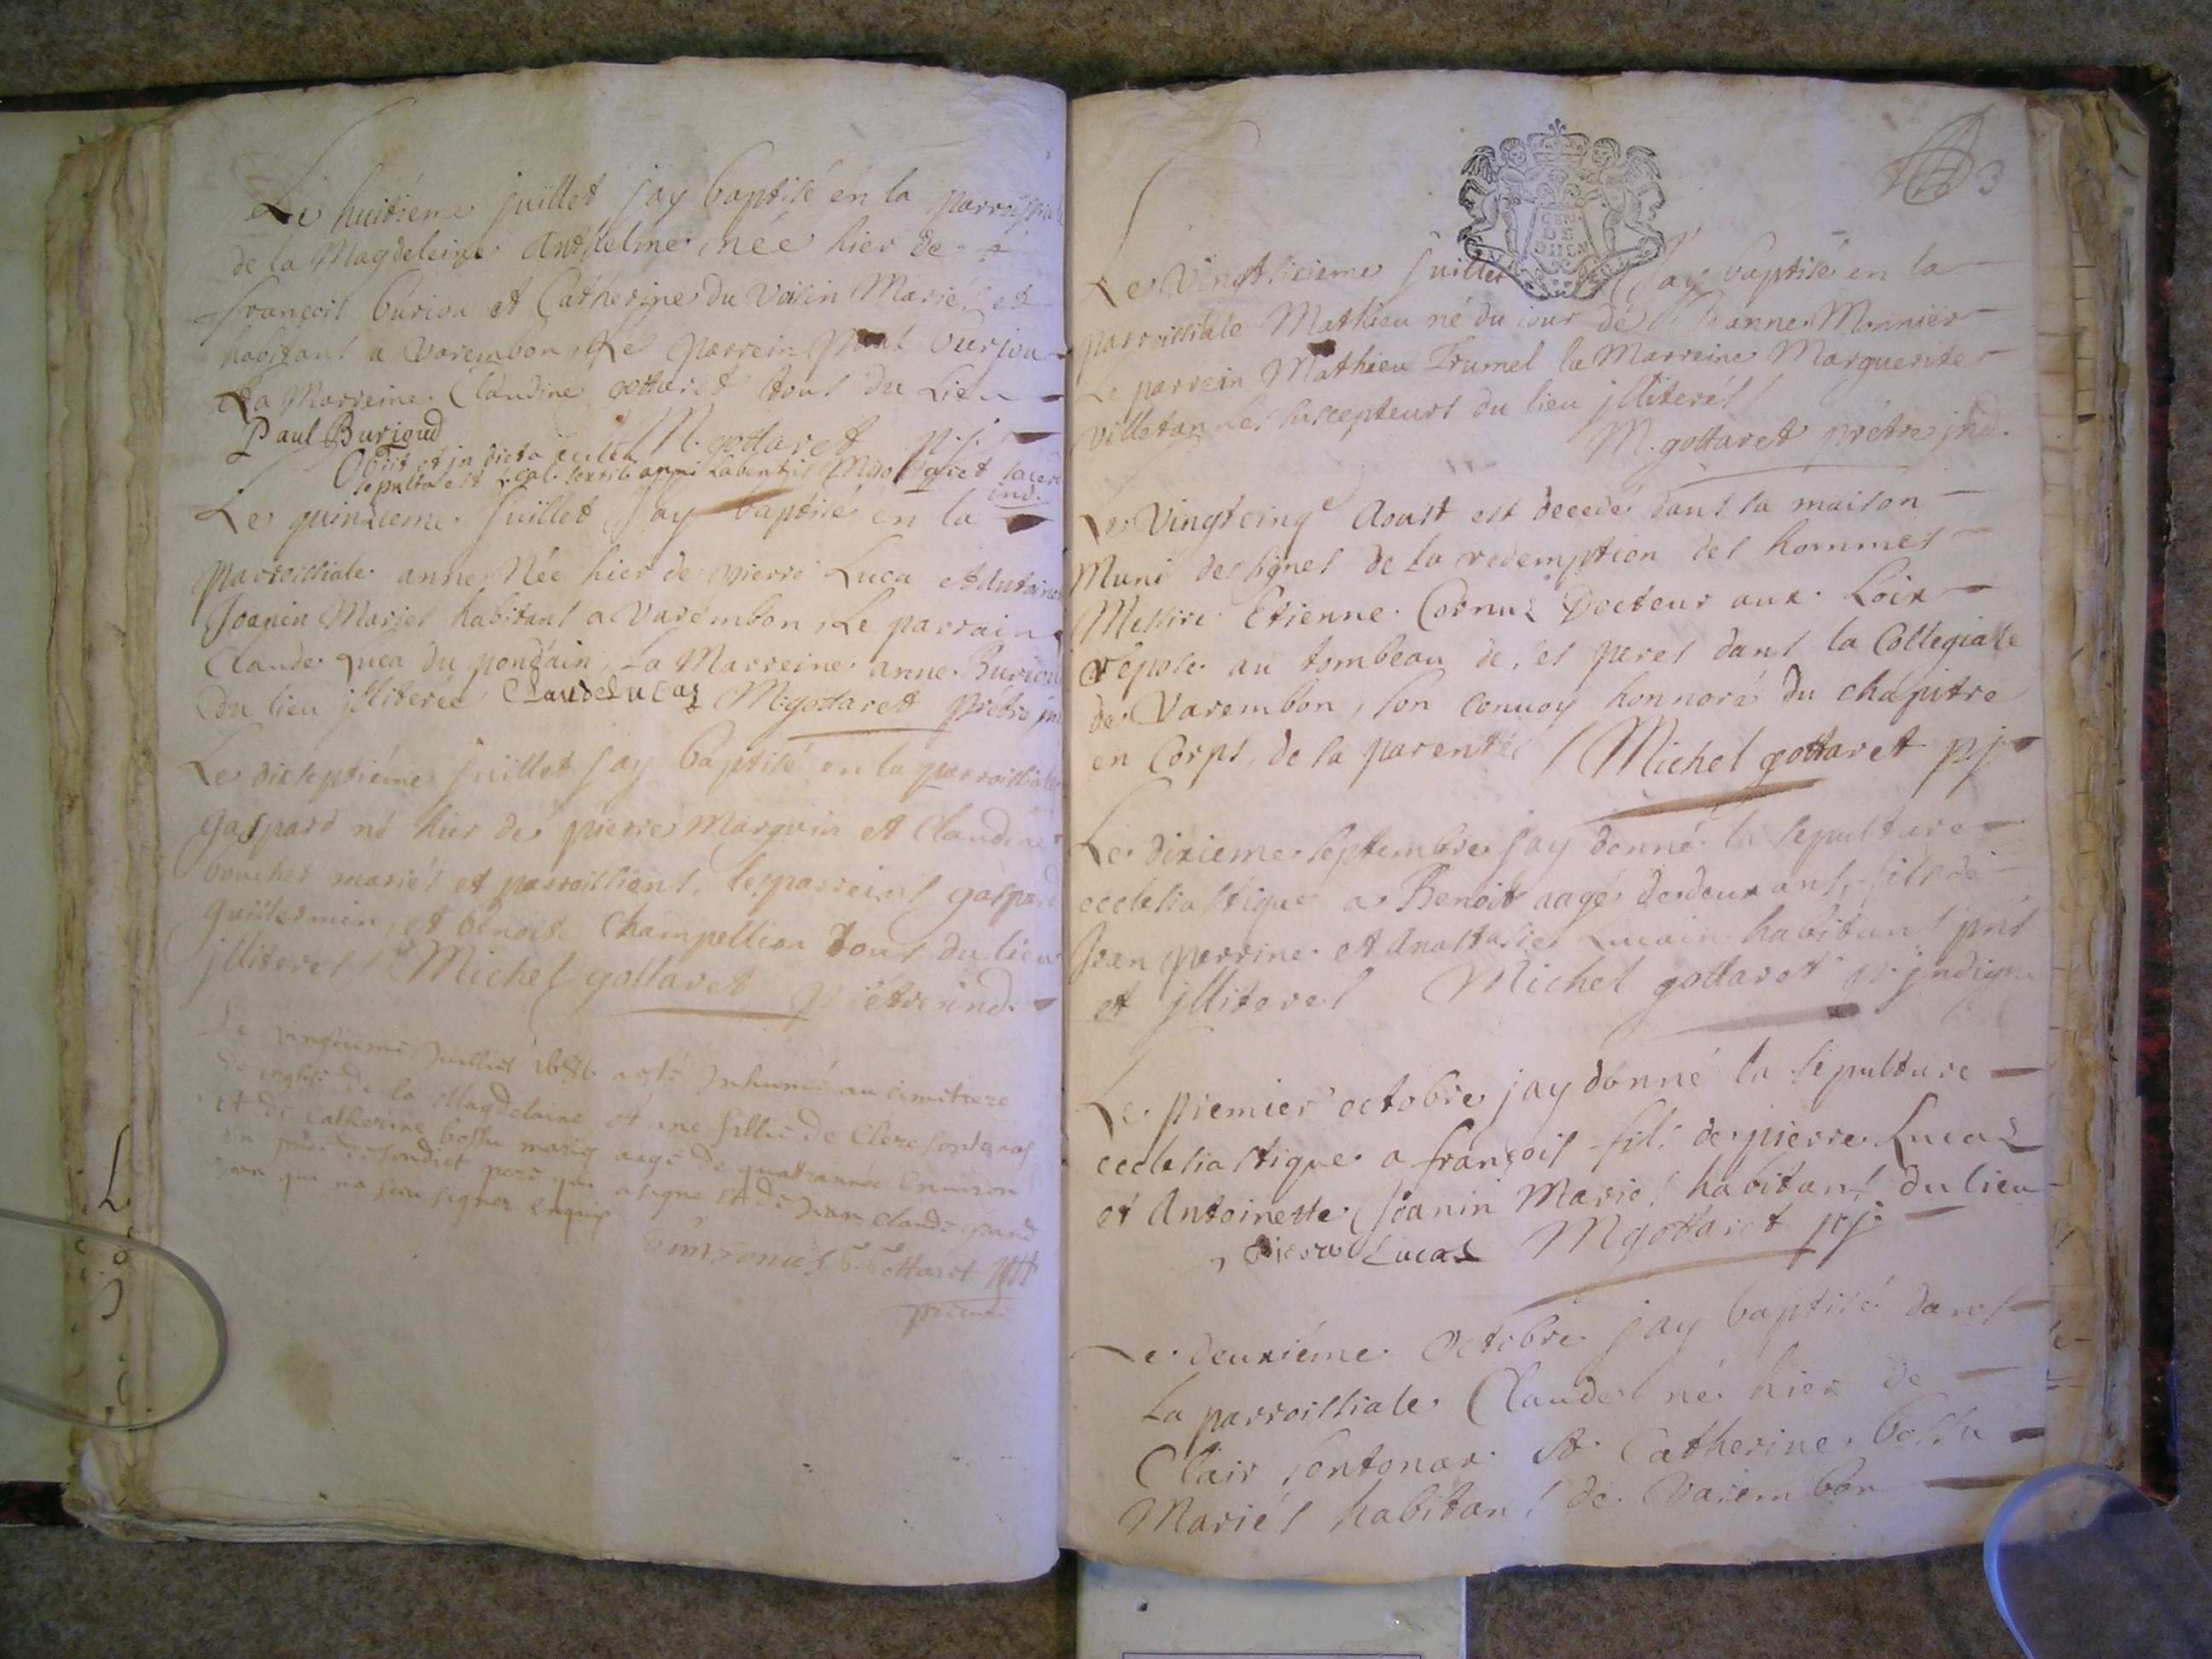 Le huitiéme juillet jay baptisé en la parroissiale
de la Magdeleine Anthelme née hier de
françois buriou et Catherine du Voisin Mariés et
habitans a Varembon, Le parrein Paul burjou
et La Marreine Claudine gottaret tous du Lieu
Paul Burjoud M. gottaret p. j.
Obiit et in dicta
sepulta est cal. anni labentis sacerd
ind.
Le quinzieme Juillet Jay baptisé en la
parroissiale anne Née hier de pierre Luca et Antoine
Joanin Mariés habitans a Varembon, Le parrain
Claude Luca du pondain, La Marreine anne Buriou
du lieu jlliterée Claude Lucas M. gottaret prétre jnd
Le dixseptiéme Juillet jay baptisé en la parroissiale
gaspard né hier de pierre Marguin et Claudine
boucher mariés et parroissiens, les parreins gaspard
guillermin, et benoite Champellion tous du lieu
jlliterés Michel gottaret prétre ind.
Le vingtieme Juillet 1686 a esté Inhumé au cimetiere
de leglise de la Magdelaine ane fillie de Clere sontonas
et de Catherine bossu mariés aagé de quatr année
pere qui a signe et de Jean Claude
qui na sceu signer enquis
gottaret
3
GEN
DE
DIION
Le Vingtsixieme Juillet Jay baptisé en la
parroissiale Mathieu né du jour de Jeanne Monnier
Le parrein Mathieu Trumel la Marreine Marguerite
Villetan Les suscepteurs du lieu jlliterés
M. gottaret prétre jnd.
Le Vingtcinq Aoust est decedé dans sa maison
Muni des signes de la redemption des hommes
Messire Etienne Cornuz Docteur aux Loix
repose au tombeau de ses peres dans la Collegiale
de Varembon, son convoy honnoré du chapitre
en Corps, de sa parenté Michel gottaret pj
Le dixieme septembre jay donné la sepulture
ecclesiastique a Benoit aagé de deux ans, fils de
Jean perrine et Anastasie Lucain habitans
et jlliterés Michel gottaret p. jndigne
Le premier octobre jay donné la sepulture
ecclesiastique a françois fils de pierre Lucas
et Antoinette Joanin Mariés habitans du lieu
Piere Lucas M gottaret pj.
Le deuxiéme Octobre jay baptisé dans
La parroissiale Claude né hier de
Clair sontonar et Catherine bossu
Mariés habitans de Varembon